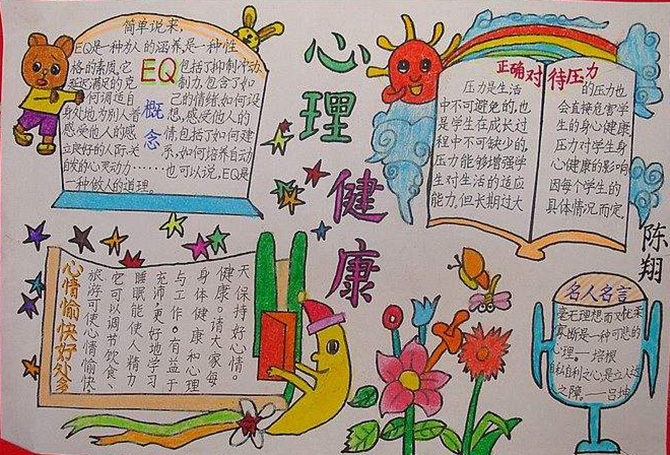 心理健康
简单说来,
EQ是一种为人的涵养,是一种性
格的素质,它
包括了抑制冲动
EQ
概念
何调适自
己的情绪,如何设
身处地为别人着
想,感受他人的
感受他人的感
情包括了如何建
立良好的人际关
系,如何培养自动
自发的心灵动力……
也可以说,EQ是
一种做人的道理。
正确对待压力
压力是生活
中不可避免的,也
是学生在成长过
程中不可缺少的,
压力能够增强学
生对生活的适应
能力,但长期过大
的压力也
会直接危害学
生的身心健康
压力对学生身
心健康的影响
因每个学生的
具体情况而定,
陈翔
心情愉快好处多
旅游可使心情愉快,
它可以调节饮食、
睡眠能使人精力
充沛,更好地学习
与工作。有益于
身体健康和心理
健康。请大家每
天保持好心情。
名人名言
毫无理想而又优柔
寡断是一种可悲的
心理——培根
自私自利之心,是立人达人
之障。——吕坤